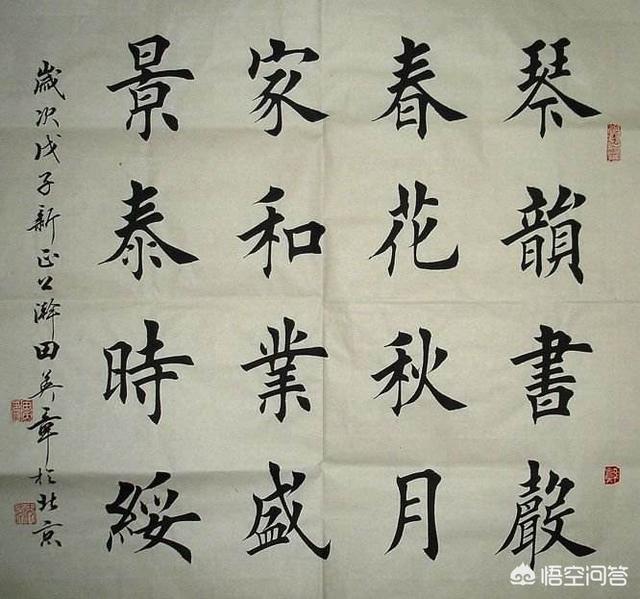 琴韻書聲
春花秋月
家和業盛
景泰時綏
歲次戊子新正公瀚田英章於北京
悟空问答